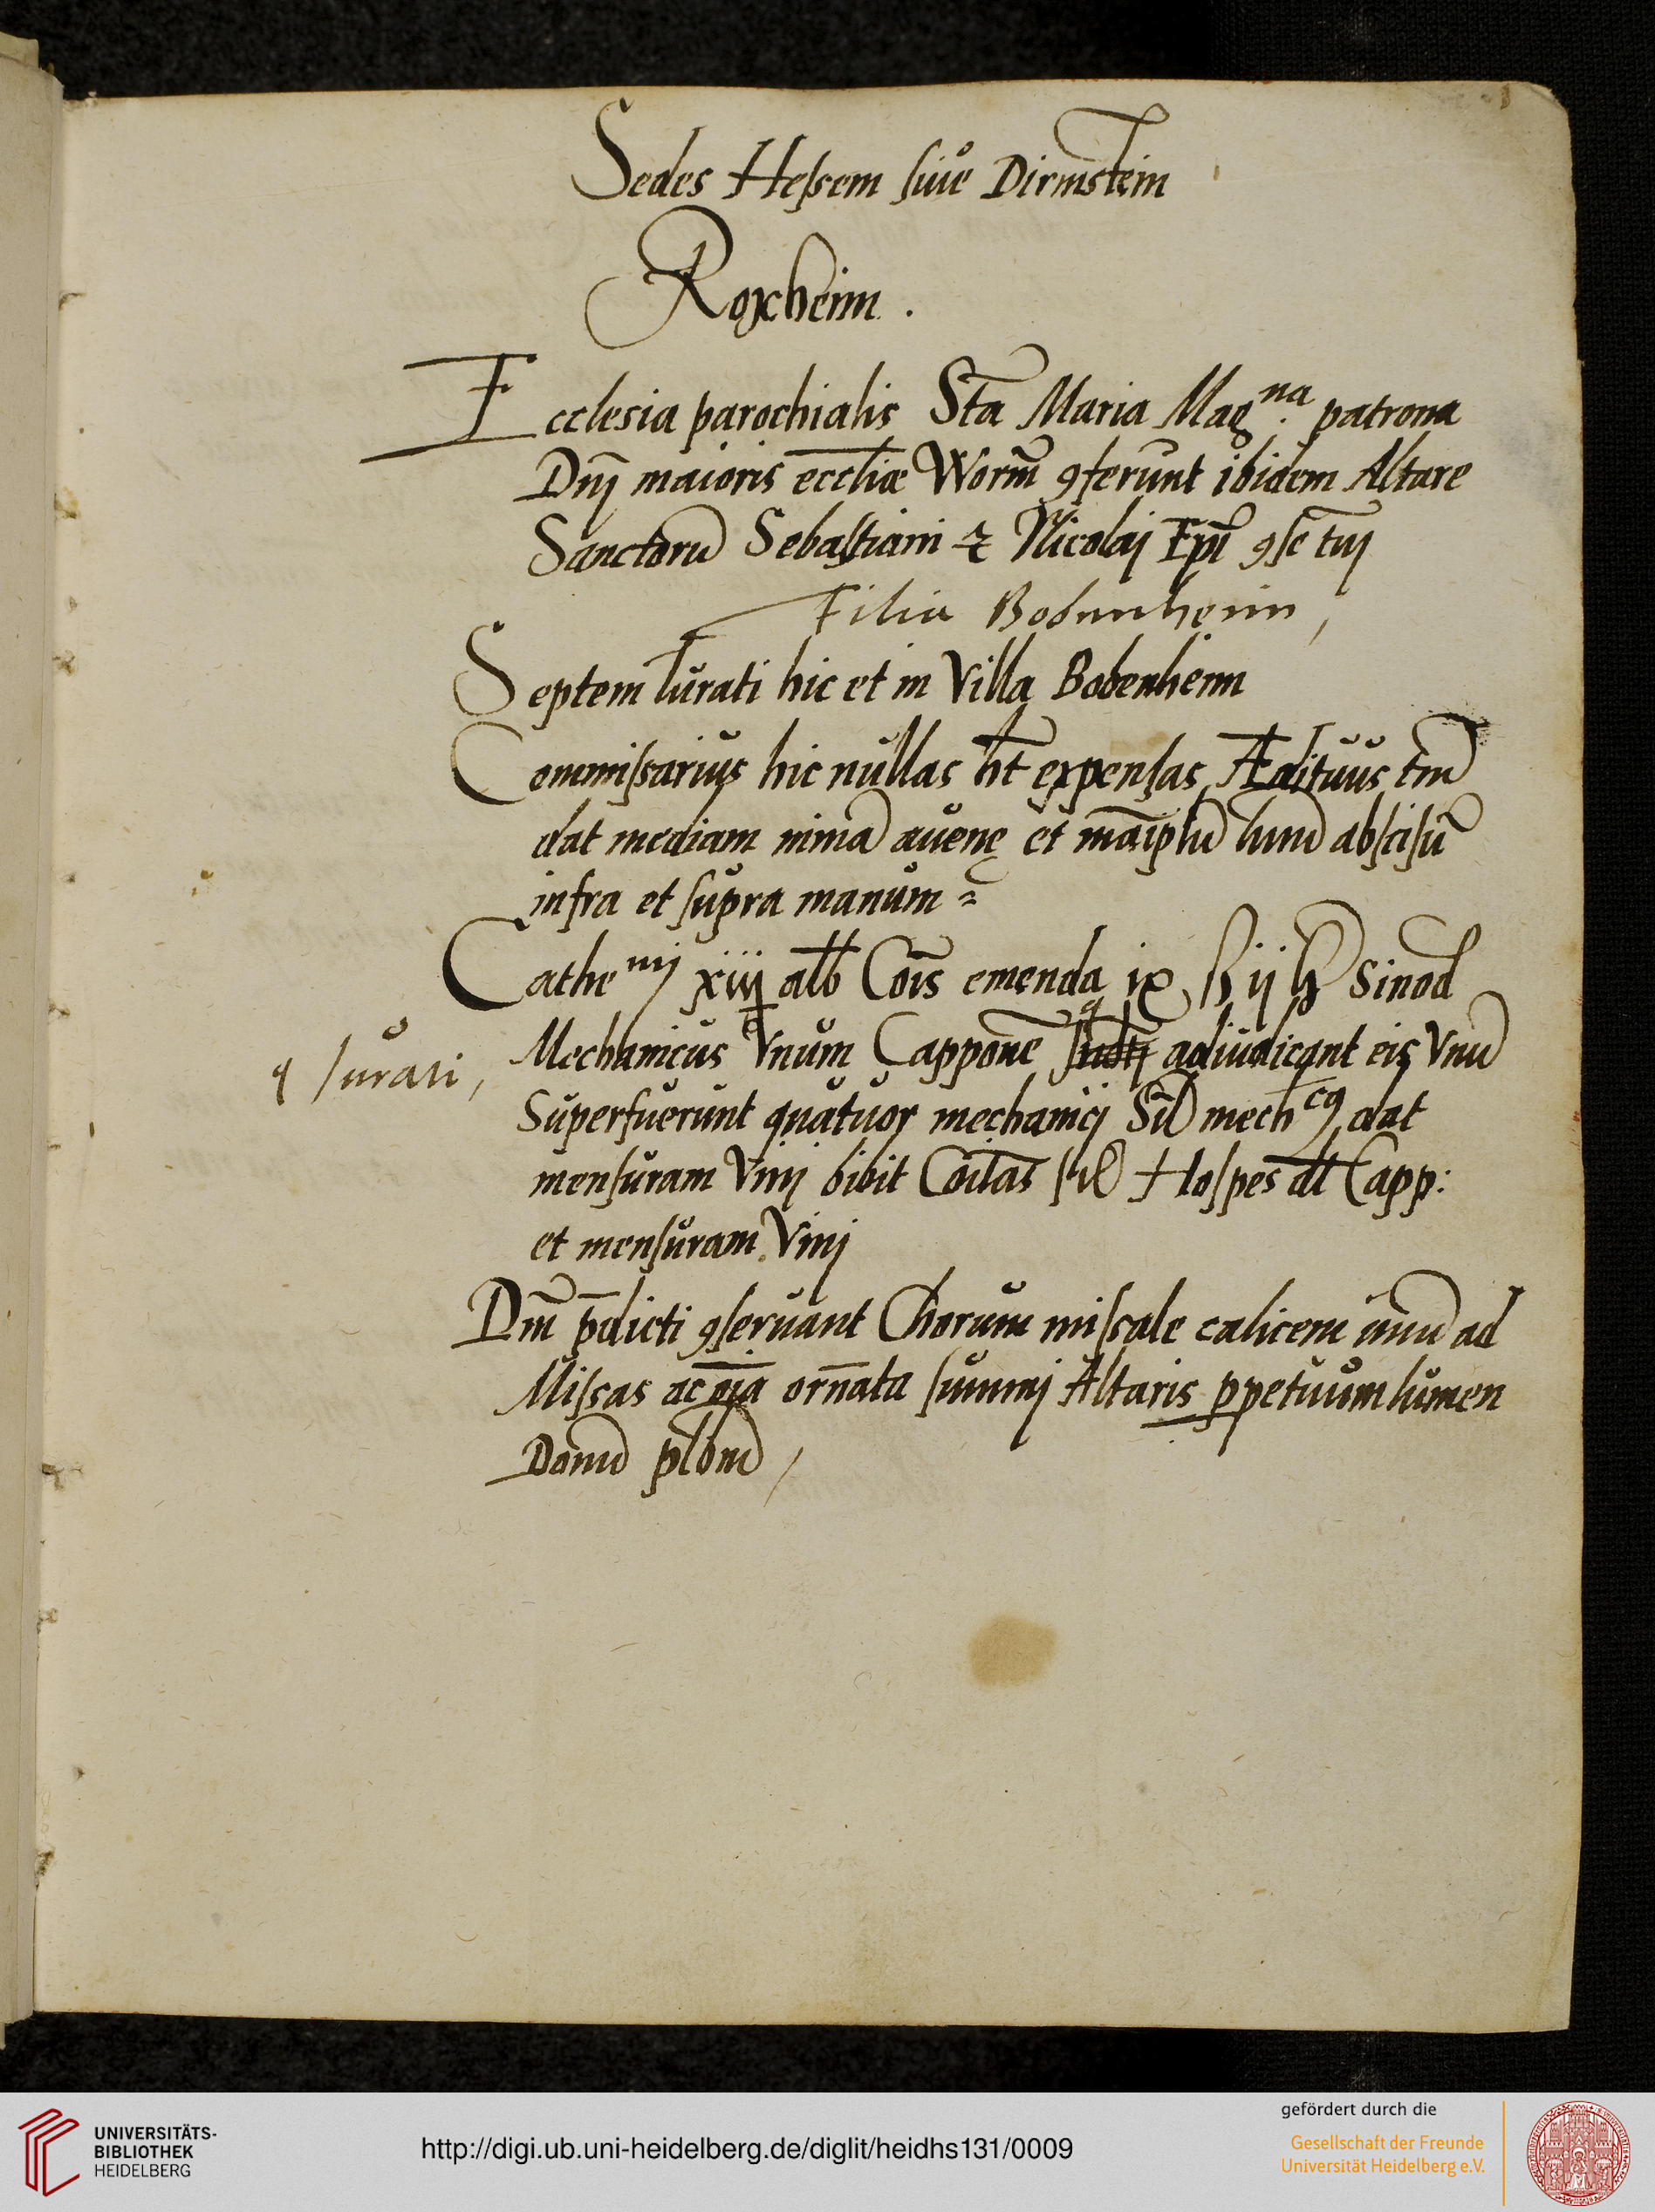 Sedes Hessem siue Dirmstein
Roxheim.
Ecclesia parochialis Sta Maria Mag^na. patrona
Dnj maioris eccliæ Worm ꝯferunt ibidem Altare
Sanctoru Sebastiani et Nicolaj Epi
Filia Bobenheim,
Septem Iurati hic et in Villa Bobenheim
Commissarius hic nullas ht expensas Ædituus tm
dat mediam auene et abscisu
infra et supra manum
Cathe xiij alb Cois emenda ix ß ij Sinod
Mechanicus Vnum Cappone adiudicant eis Vnu
Iurati,
Superfuerunt quatuor mechanicj mech dat
mensuram Vinj bibit Coitas Hospes dt Capp:
et mensuram Vinj
Dni pdicti ꝯseruant Chorum missale calicem unu ad
Missas ac oia ornata summj Altaris ppetuum lumen
Domu
UNIVERSITÄTS-
BIBLIOTHEK
HEIDELBERG
http://digi.ub.uni-heidelberg.de/diglit/heidhs131/0009
gefördert durch die
Gesellschaft der Freunde
Universität Heidelberg e.V.